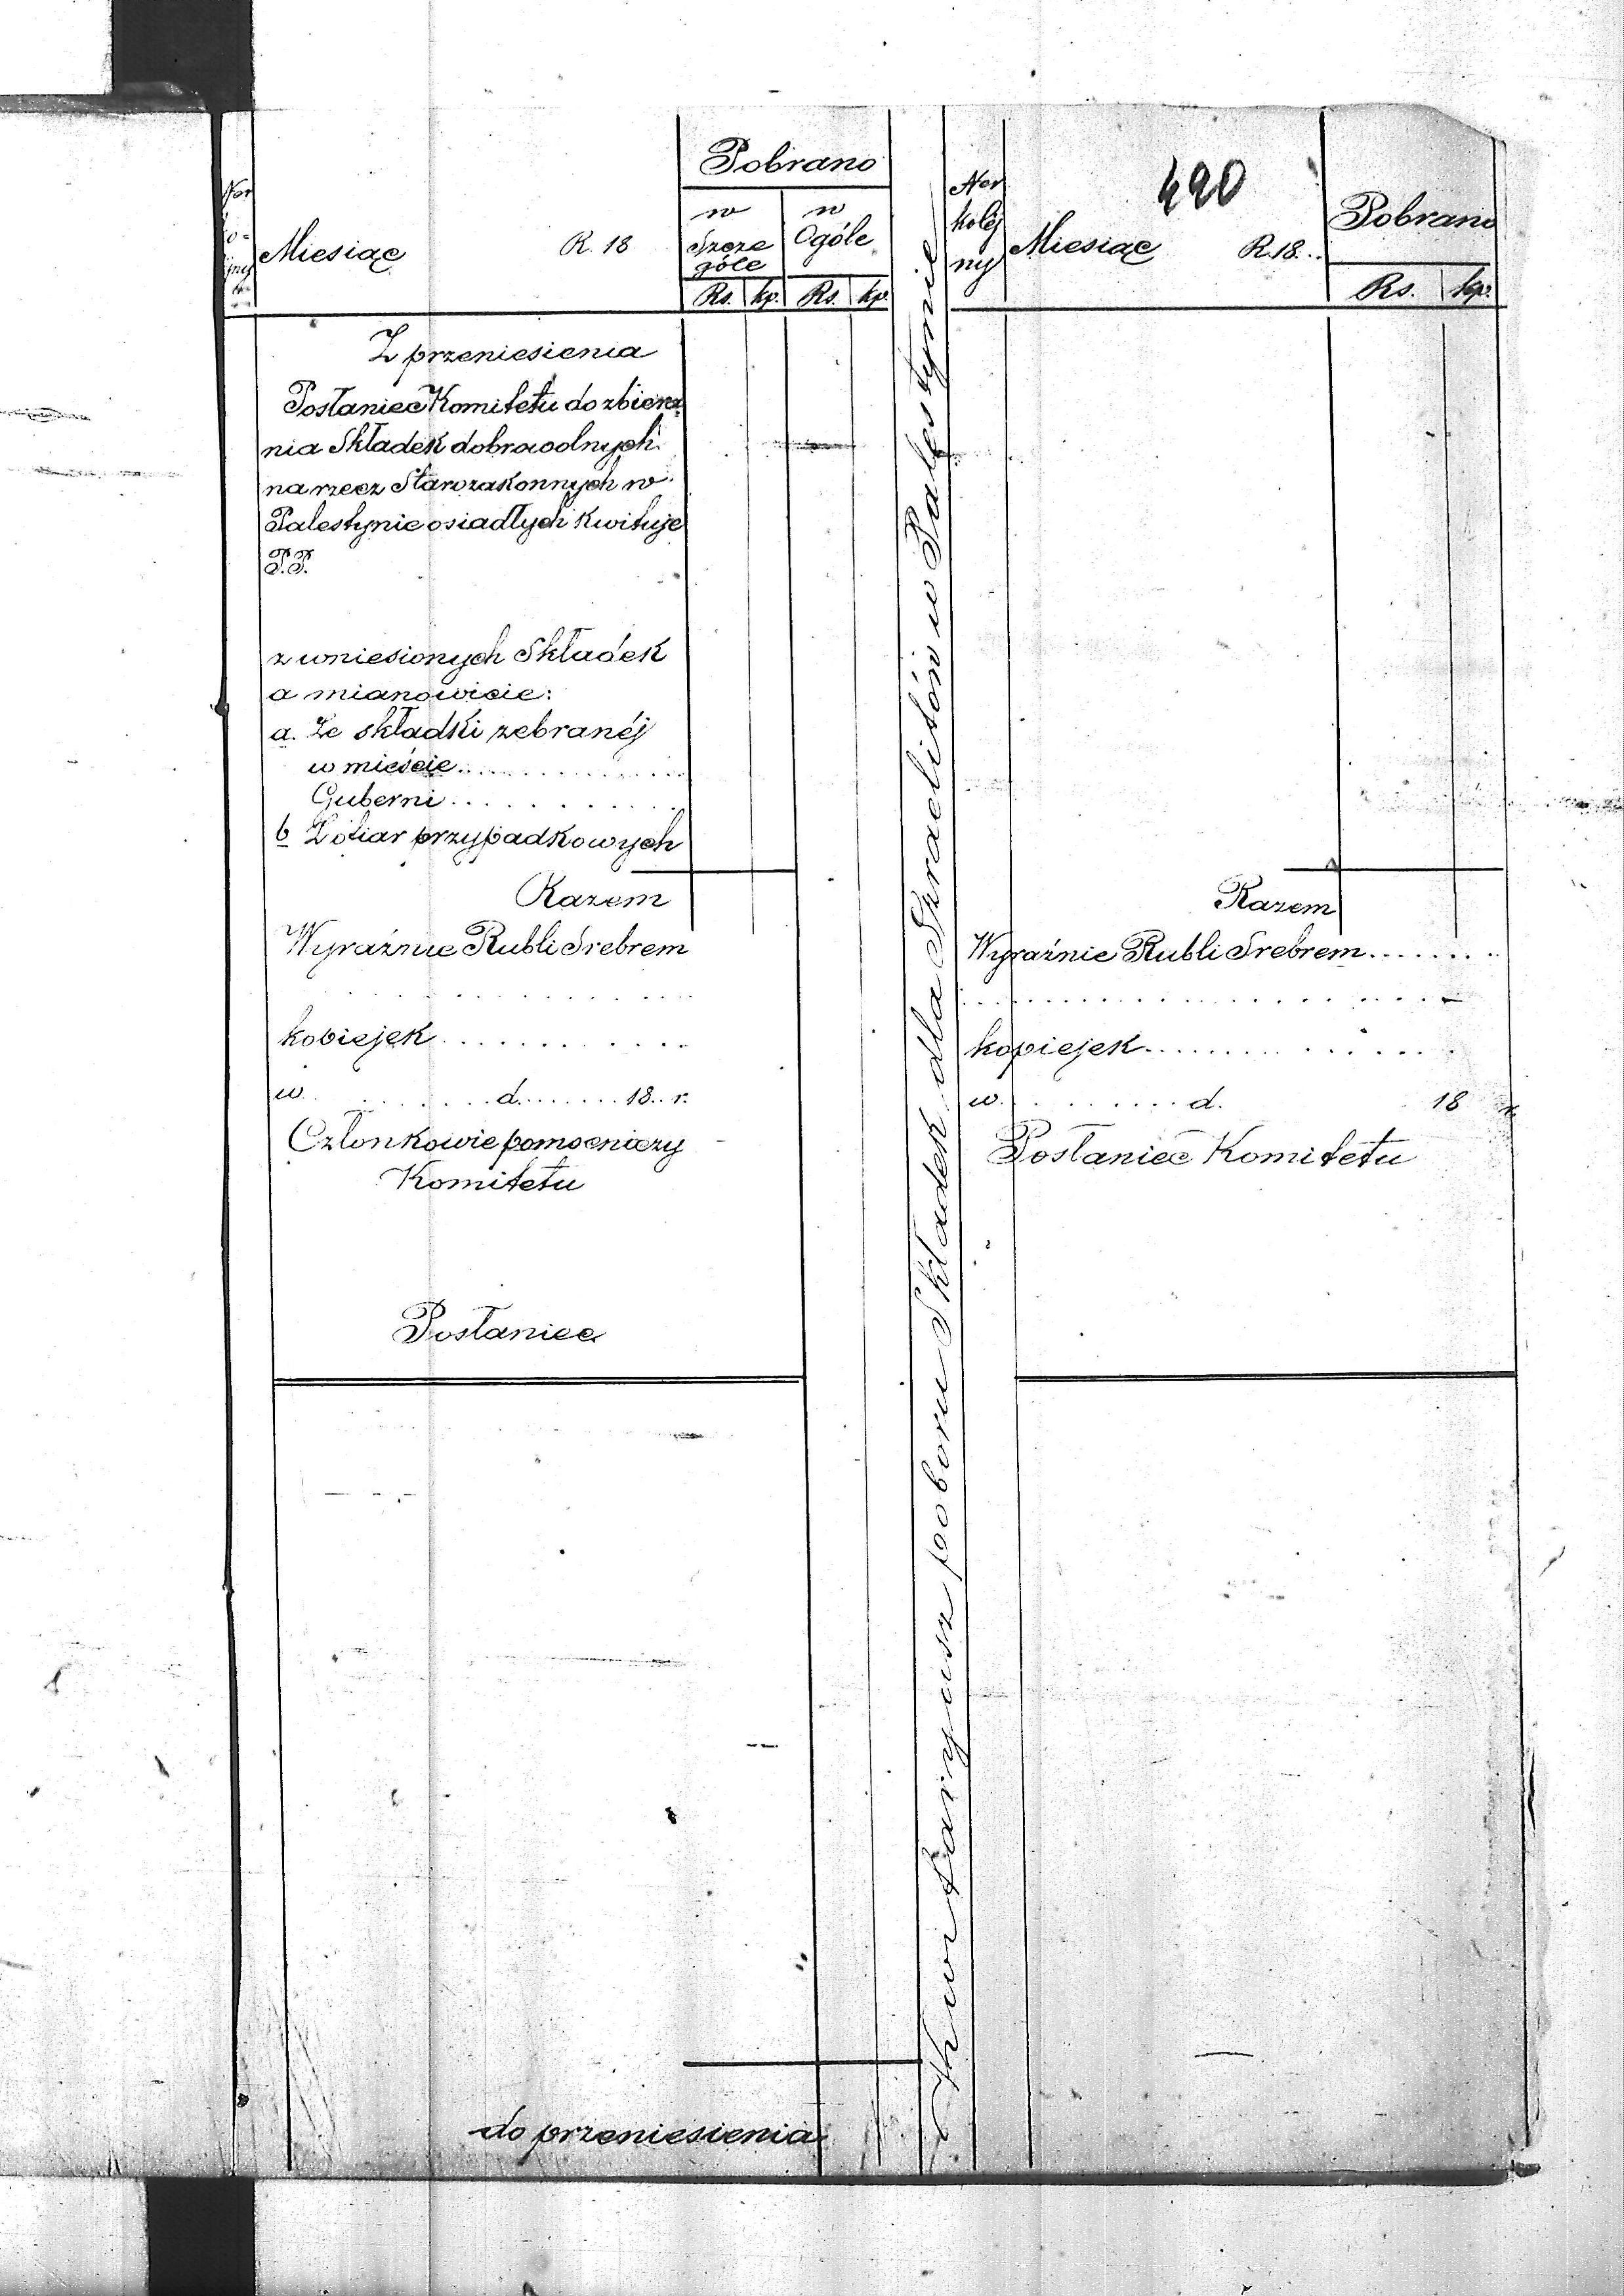 Miesiąc R. 18
Pobrano
w Szcze góle
w Ogóle
Rs. kp. Rs. kp.
Z przeniesienia
Posłaniec Komitetu do zbiera
nia Składek dobrowolnych
na rzecz Starozakonnych w
Palestynie osiadłych kwituje
P.P.
z wniesionych Składek
a mianowicie:
a. Ze składki zebranéj
w mieście
Guberni
b Z ofiar przypadkowych
Razem
Wyraźnie Rubli Srebrem
kopiejek
w. d. 18 r.
Członkowie pomocniczy
Komitetu
Posłaniec
do przeniesienia
Kwitaryusz poboru Składek dla Izraelitów w Palestynie
420
Ner
kolej
ny
Miesiąc R. 18
Pobrano
Rs. kp.
Razem
Wyraźnie Rubli Srebrem
kopiejek
w. d. 18 r
Posłaniec Komitetu